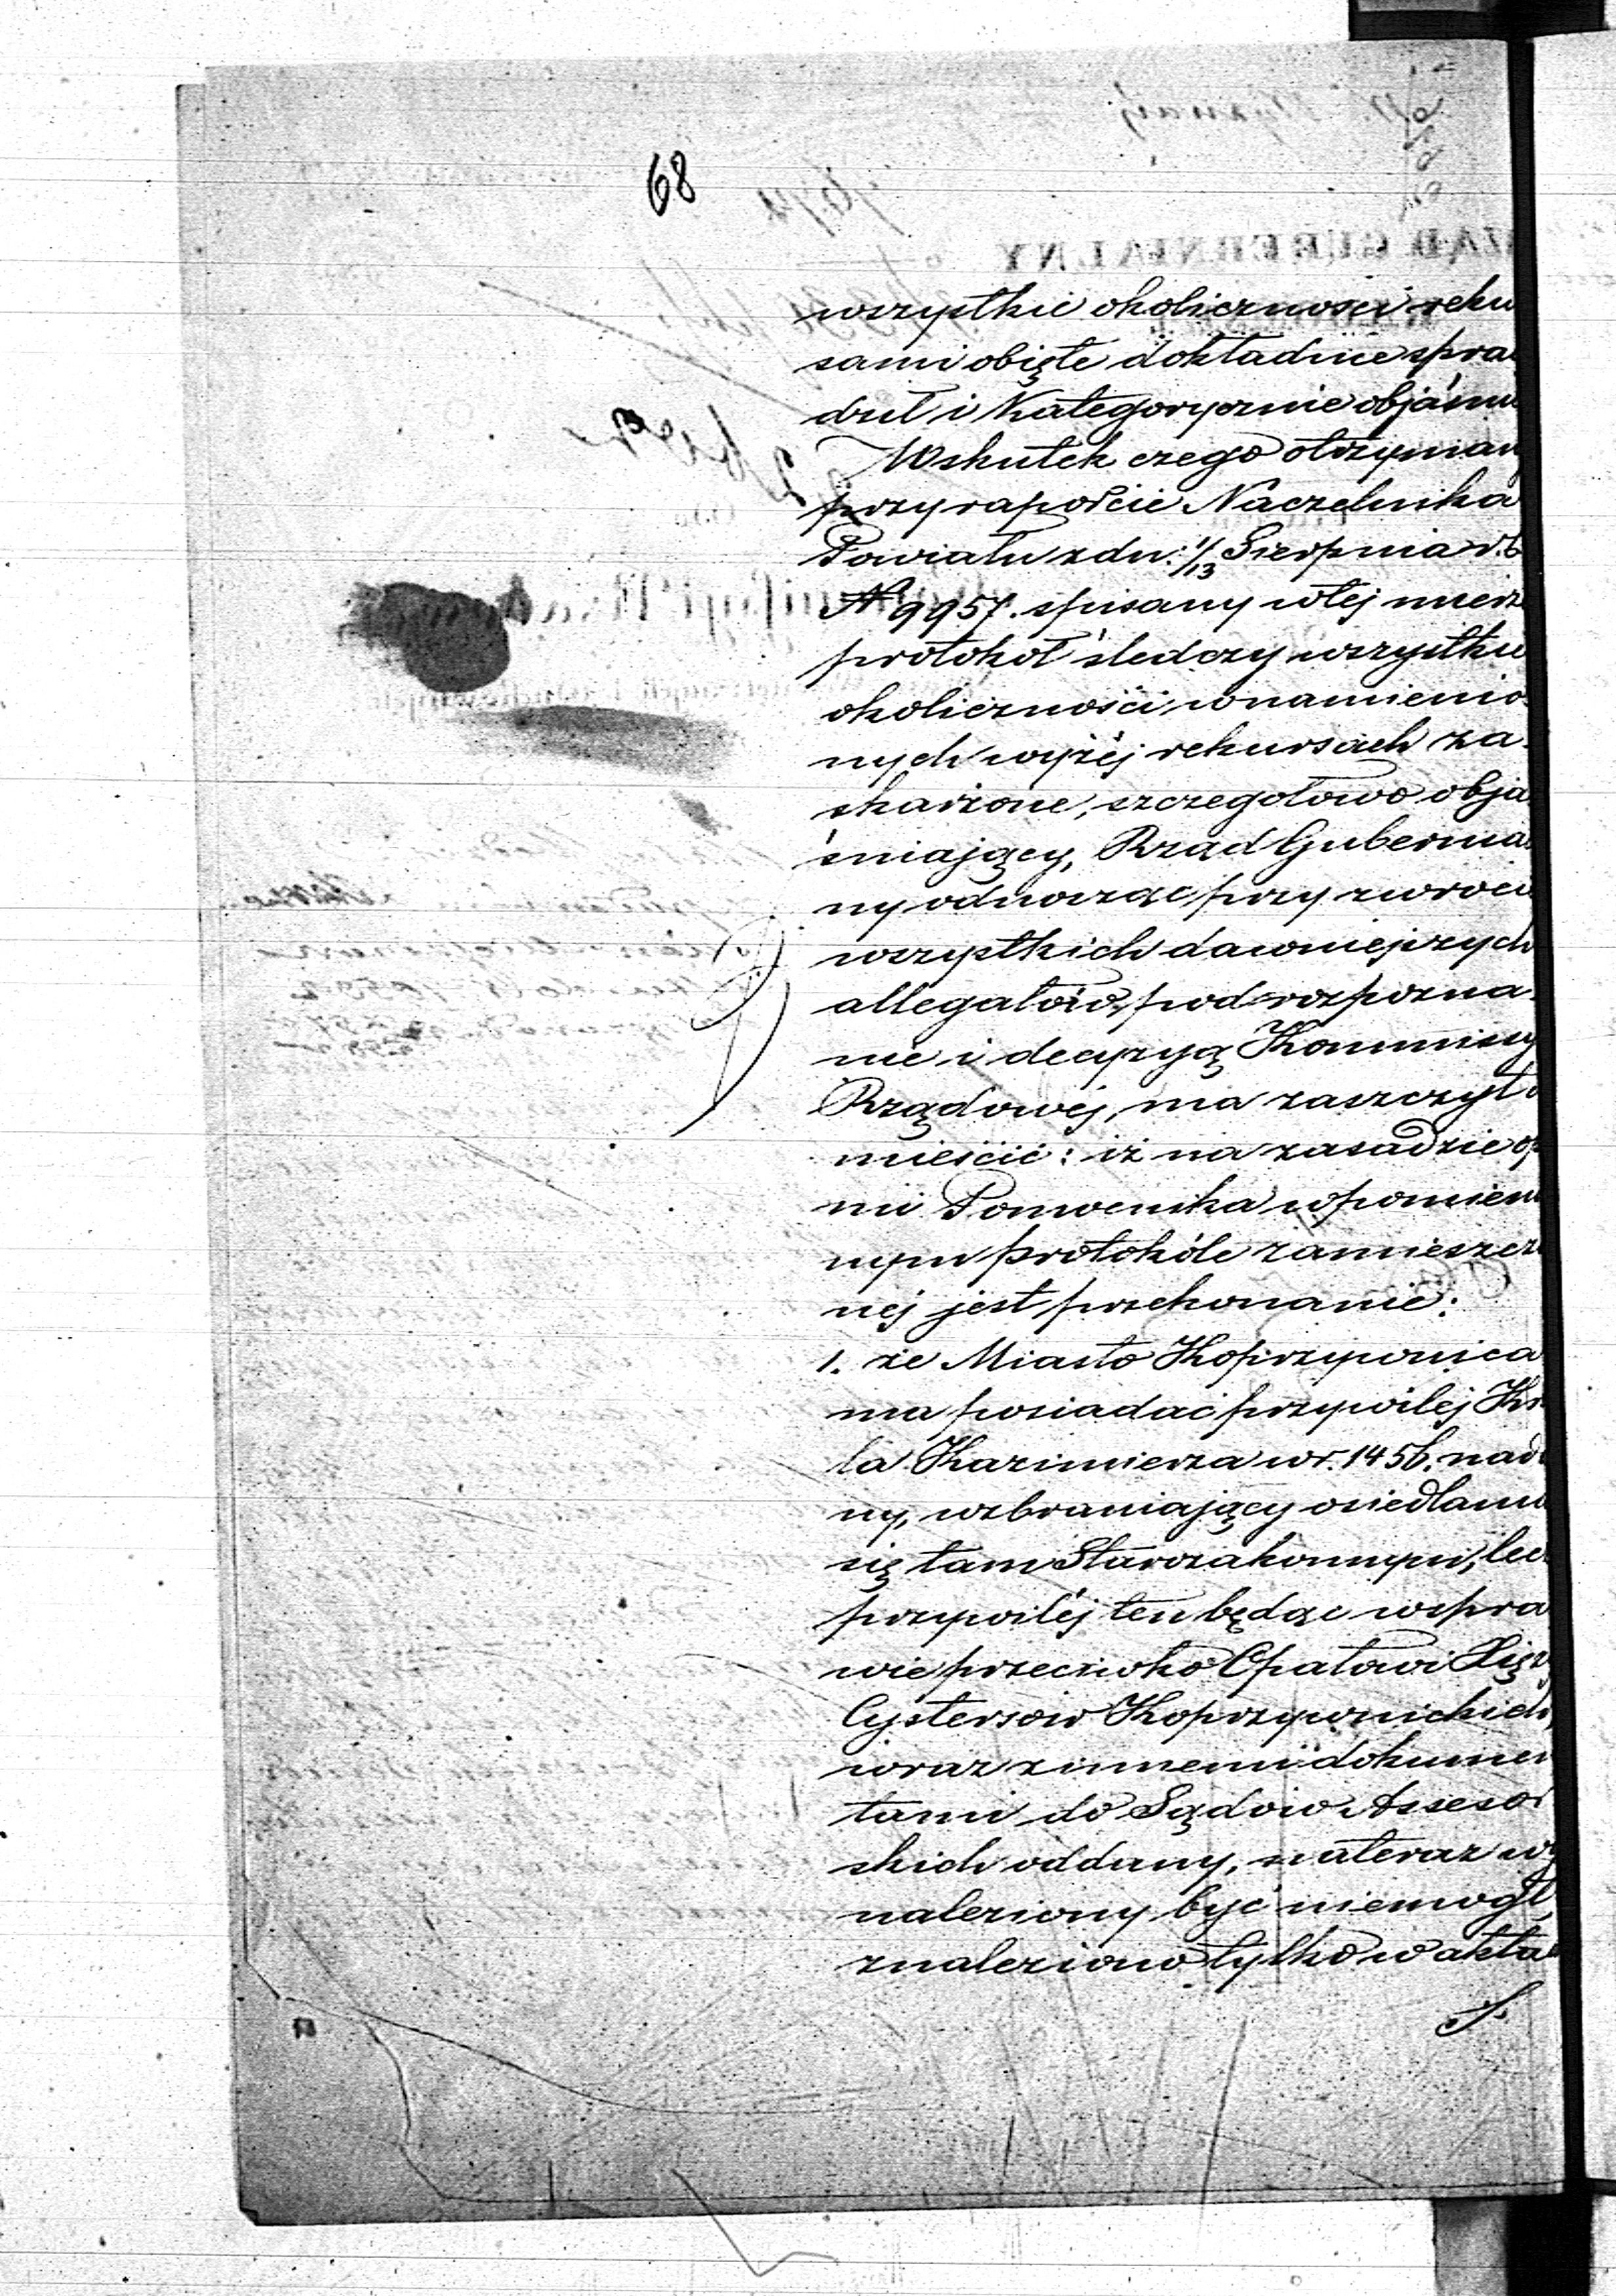 68
wszystkie okoliczności reku
sami obięte dokładnie spra
dził i Kategorycznie objaśni
Wskutek czego otrzyman
przy raporcie Naczelnika
Powiatu z dn: 1/13 Sierpnia r.b.
№ 9957. spisany w tej mierz
protokół śledczy wszystkie
okoliczności w namienio-
nych wyżej rekursach za-
skarżone, szczegółowo obja-
śniający, Rząd Gubernial
ny odnosząc przy zwroci
wszystkich dawniejszych
allegatów, pod rozpozna-
nie i decyzyą Kommissy
Rządowej, ma zaszczyt
mieścić: iż na zasadzie op
nii Pomocnika w pomien
nym protokóle zamieszcz
nej jest przekonanie:
1. że Miasto Koprzywnica
ma posiadać przywilej Kr
la Kazimierza w r. 1456. nad
ny, wzbraniający osiedlani
się tam Starozakonnym, lec
przywilej ten będąc w spra
wie przeciwko Opatowi Xięż
Cystersów Koprzywnickich,
wraz z innemi dokumen
tami do Sądów Assesor
skich oddany, na teraz wy
naleziony być niemógł,
znaleziono tylko w akta